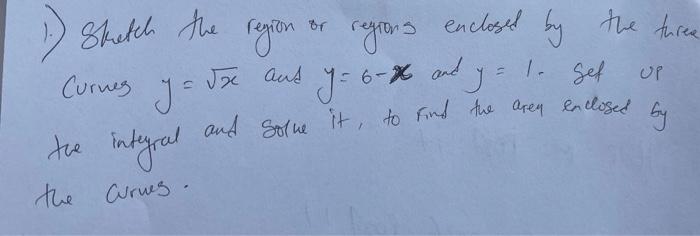 1.) Sketch the region or regions enclosed by the three
Curves y = √x and y = 6-x and y = 1. Set up
the integral and solve it, to find the area enclosed by
the curves.